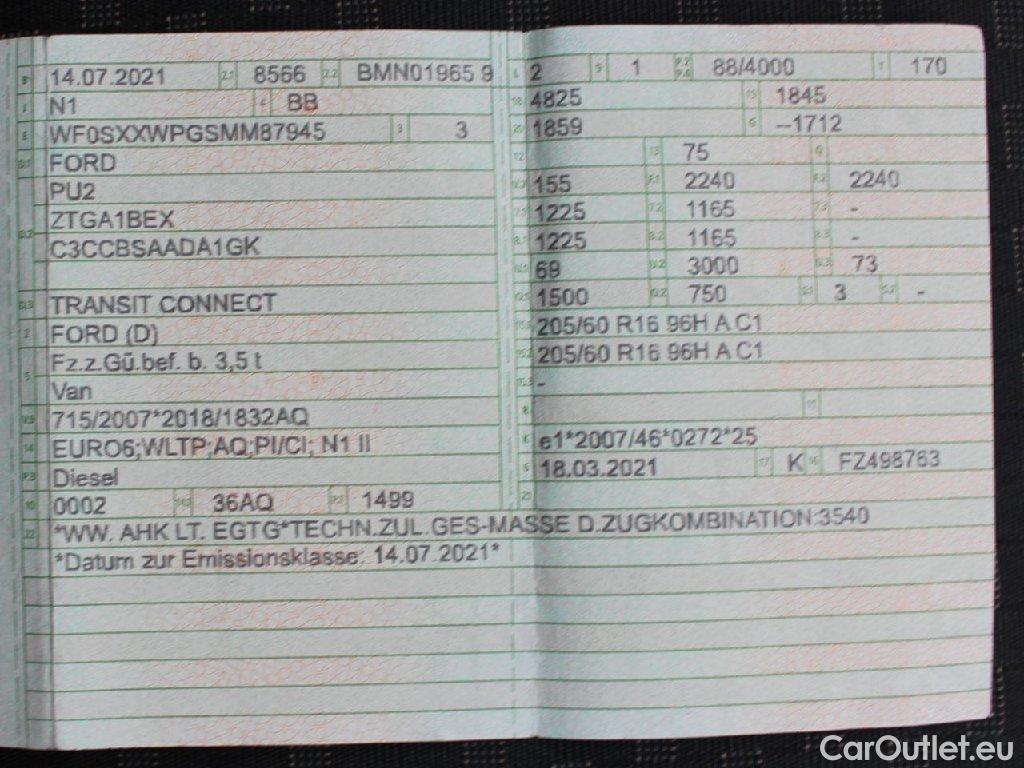 B 14.07.2021 2.1 8566 2.2 BMN01965 9
J N1 4 BB
E WF0SXXWPGSMM87945 3 3
D.1 FORD
PU2
D.2 ZTGA1BEX
C3CCBSAADA1GK
D.3 TRANSIT CONNECT
2 FORD (D)
5 Fz.z.Gü.bef. b. 3,5 t
Van
V.9 715/2007*2018/1832AQ
14 EURO6;WLTP;AQ;PI/CI; N1 II
P.3 Diesel
10 0002 14.1 36AQ P.1 1499
22 *WW. AHK LT. EGTG*TECHN.ZUL.GES-MASSE D.ZUGKOMBINATION:3540
*Datum zur Emissionsklasse: 14.07.2021*
L 2 9 1 P.2 P.4 88/4000 T 170
18 4825 19 1845
20 1859 G --1712
12 13 75 Q
V.7 155 F.1 2240 F.2 2240
7.1 1225 7.2 1165 7.3 -
8.1 1225 8.2 1165 8.3 -
U.1 69 U.2 3000 U.3 73
O.1 1500 O.2 750 S.1 3 S.2 -
15.1 205/60 R16 96H A C1
15.2 205/60 R16 96H A C1
15.3 -
R 11
K e1*2007/46*0272*25
6 18.03.2021 17 K 16 FZ498763
21
CarOutlet.eu